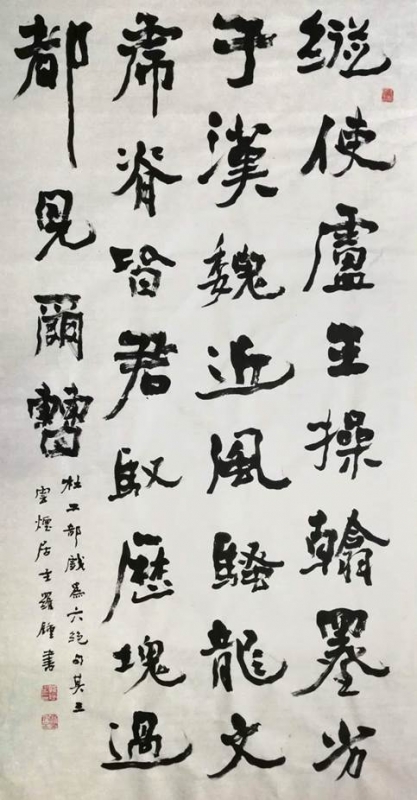 縱使盧王操翰墨劣
于漢魏近風騷龍文
虎脊皆君馭歷塊過
都見爾曹
杜工部戲為六絕句其三
雲煙居士羅鍾書